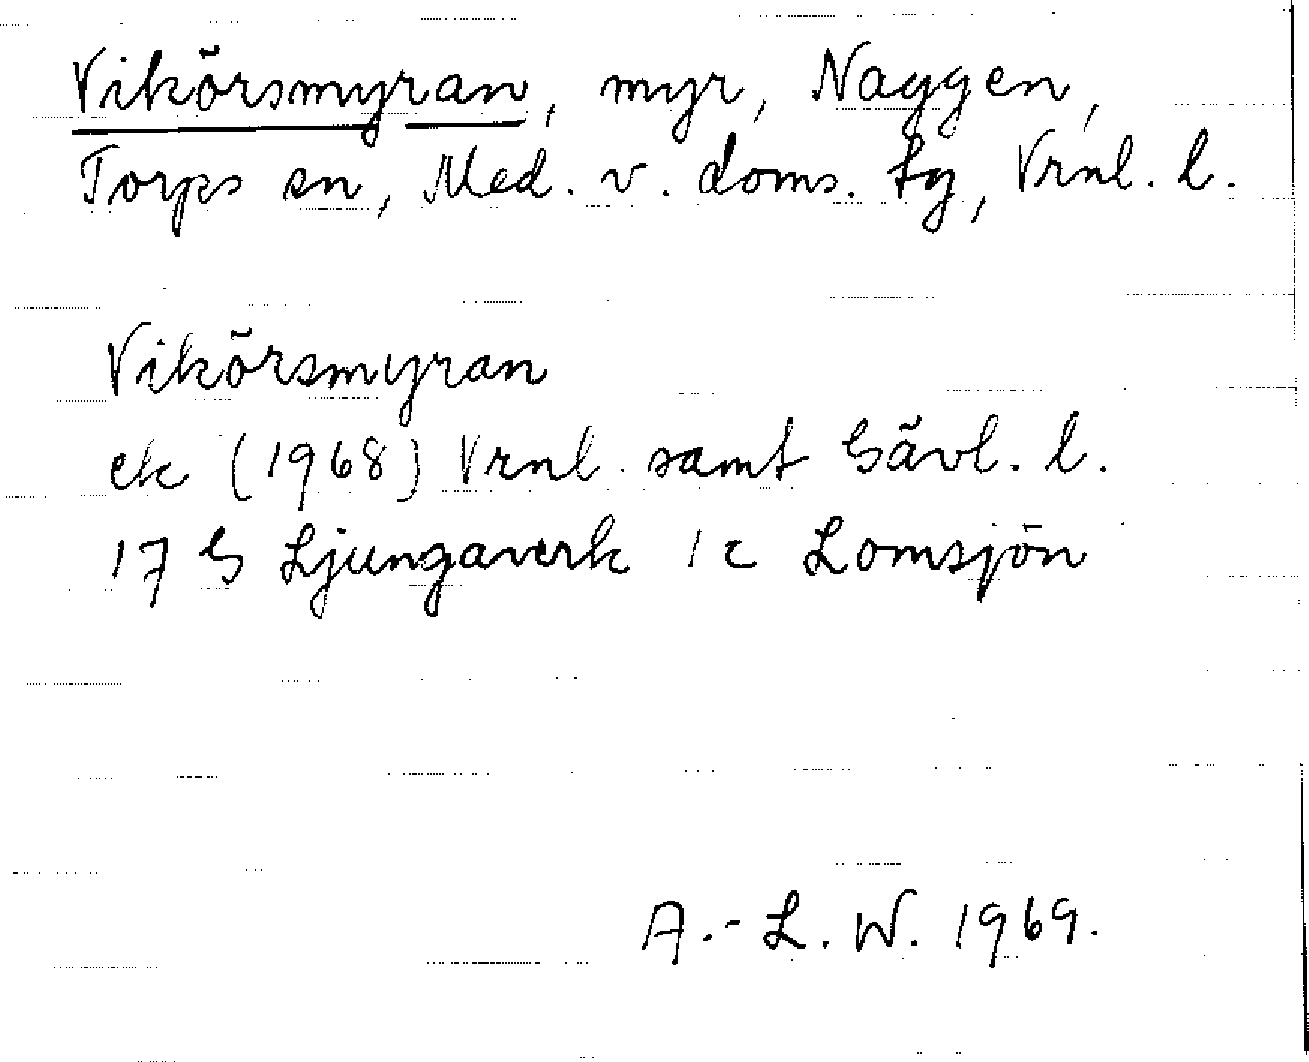 Vikörsmyran, myr, Naggen,
Torps sn, Med. v. doms. tg, Vrnl. l.
Vikörsmyran
ek (1968) Vrnl. samt Gävl. l.
17 G Ljungaverk 1 c Lomsjön
A.-L. W. 1969.